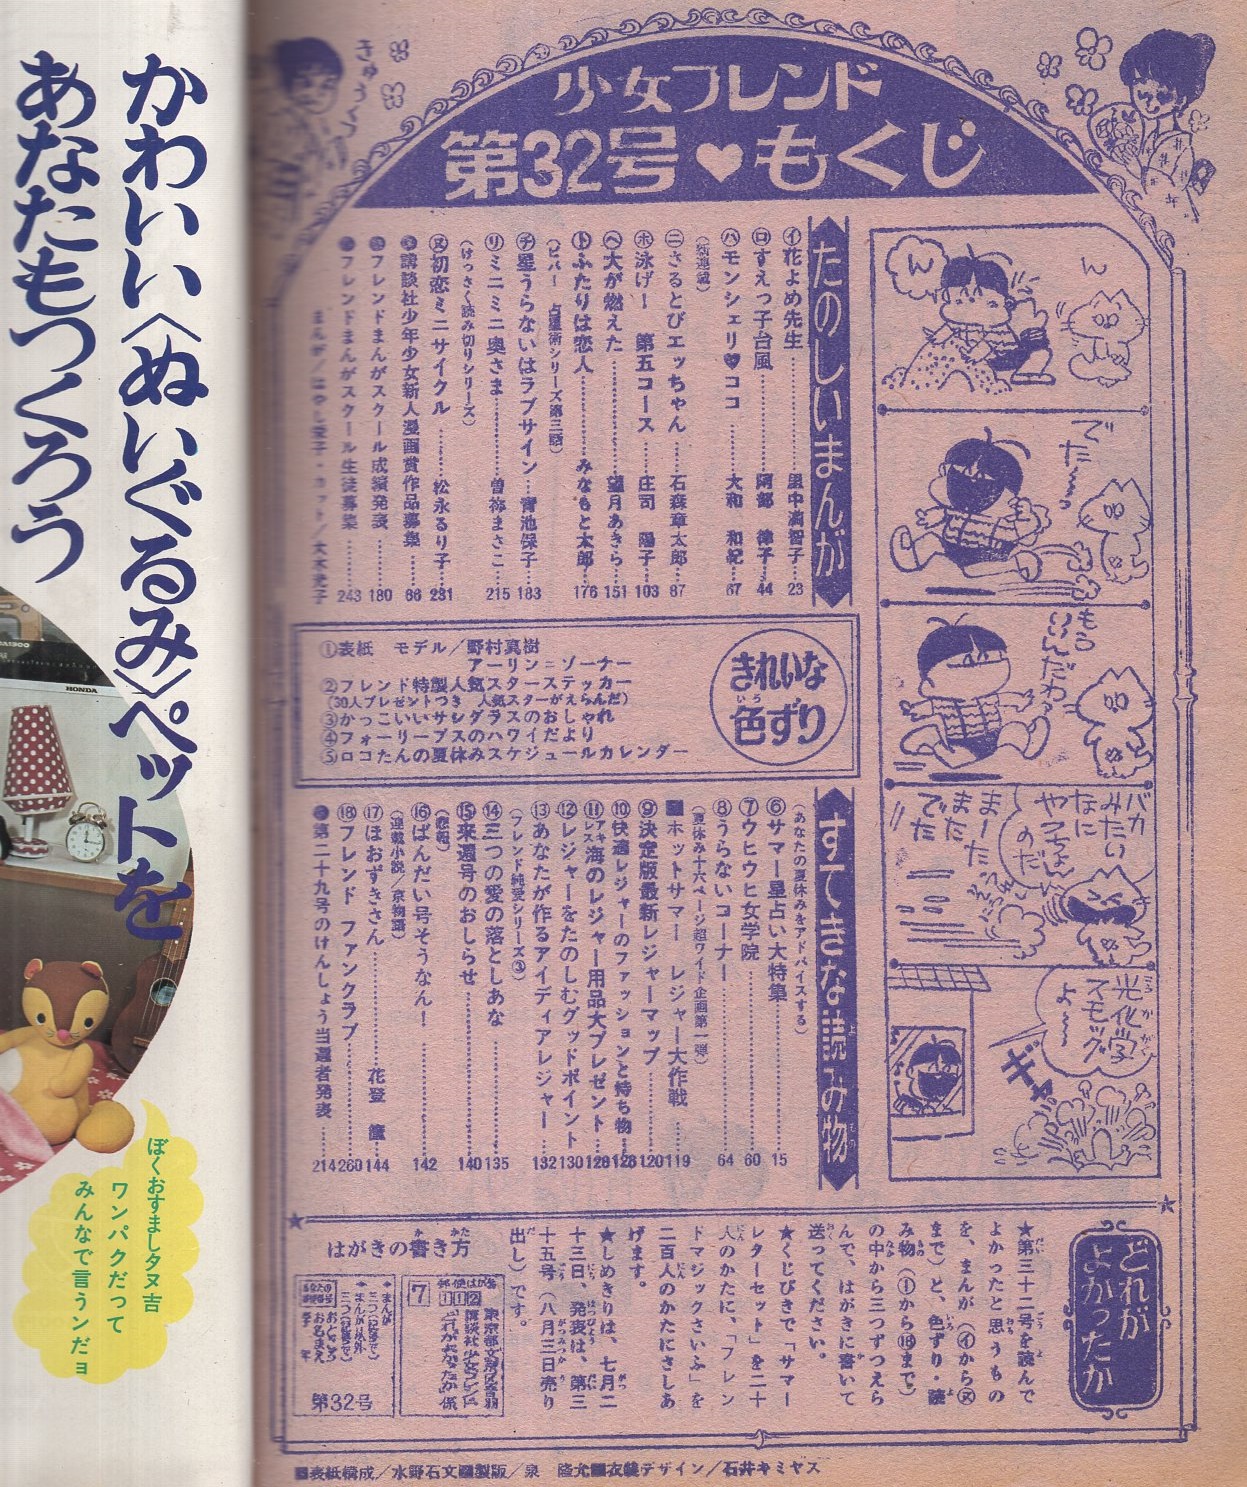 かわいい〈ぬいぐるみ〉ペットを
あなたもつくろう
HONDA
ぼくおすましタヌ吉
ワンパクだって
みんなで言うンだョ
きゅうくつ
少女フレンド
第32号♥もくじ
たのしいまんが
㋑花よめ先生……里中満智子…23
㋺すえっ子台風……阿部 律子…44
㋩モンシェリ♥ココ……大和 和紀…67
(新連載)
㋥さるとびエッちゃん……石森章太郎…87
㋭泳げー 第五コース……庄司 陽子…103
㋬大が燃えた……望月あきら…151
㋣ふたりは恋人……みなもと太郎…176
(ビバー 占星術シリーズ第三話)
㋠星うらないはラブサイン…青池保子…183
㋷ミニミニ奥さま……曽祢まさこ…215
(けっさく読み切りシリーズ)
㋦初恋ミニサイクル……松永るり子…231
●講談社少年少女新人漫画賞作品募集…66
●フレンドまんがスクール成績発表……180
●フレンドまんがスクール生徒募集……243
きれいな
色ずり
いろ
①表紙 モデル/野村真樹
アーリン=ゾーナー
②フレンド特製人気スターステッカー
(30人プレゼントつき 人気スターがえらんだ)
③かっこいいサングラスのおしゃれ
④フォーリーブスのハワイだより
⑤ロコたんの夏休みスケジュールカレンダー
すてきな読み物
(あなたの夏休みをアドバイスする)
⑥サマー星占い大特集……15
⑦ウヒウヒ女学院……60
⑧うらないコーナー……64
(夏休み十六ページ超ワイド企画第一弾)
■ホットサマー レジャー大作戦……119
⑨決定版最新レジャーマップ……120
⑩快適レジャーのファッションと持ち物…126
⑪アキレス海のレジャー用品大プレゼント…129
⑫レジャーをたのしむグッドポイント…130
⑬あなたが作るアイディアレジャー…132
(フレンド純愛シリーズ③)
⑭三つの愛の落としあな……135
⑮来週号のおしらせ……140
⑯ばんだい号そうなん!……142
(連載小説/京物語)
⑰ほおずきさん……花登 筺…144
⑱フレンド ファンクラブ……260
●第二十九号のけんしょう当選者発表……214
ん
ん
でた〜っ
もう
いいんだわっ
バカ
みたい
なに
やってん
のだ
まーた
また
でた
光化学
スモッグ
よ〜
ギャ
どれが
よかったか
★第三十二号を読んで
よかったと思うもの
を、まんが(㋑から㋦
まで)と、色ずり・読
み物(①から⑱まで)
の中から三つずつえら
んで、はがきに書いて
送ってください。
★くじびきで「サマー
レターセット」を二十
人のかたに、「フレン
ドマジックさいふ」を
二百人のかたにさしあ
げます。
★しめきりは、七月二
十三日、発表は、第三
十五号(八月三日売り
出し)です。
はがきの書き方
7
郵便はがき
112
東京都文京区音羽
講談社少女フレンド
どれがよかったか係
第32号
■表紙構成/水野石文■製版/泉 隆允■衣装デザイン/石井キミヤス